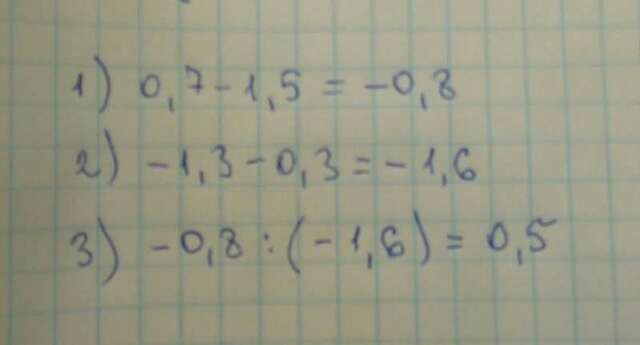 1) 0,7-1,5=-0,8
2) -1,3-0,3=-1,6
3) -0,8:(-1,6)=0,5